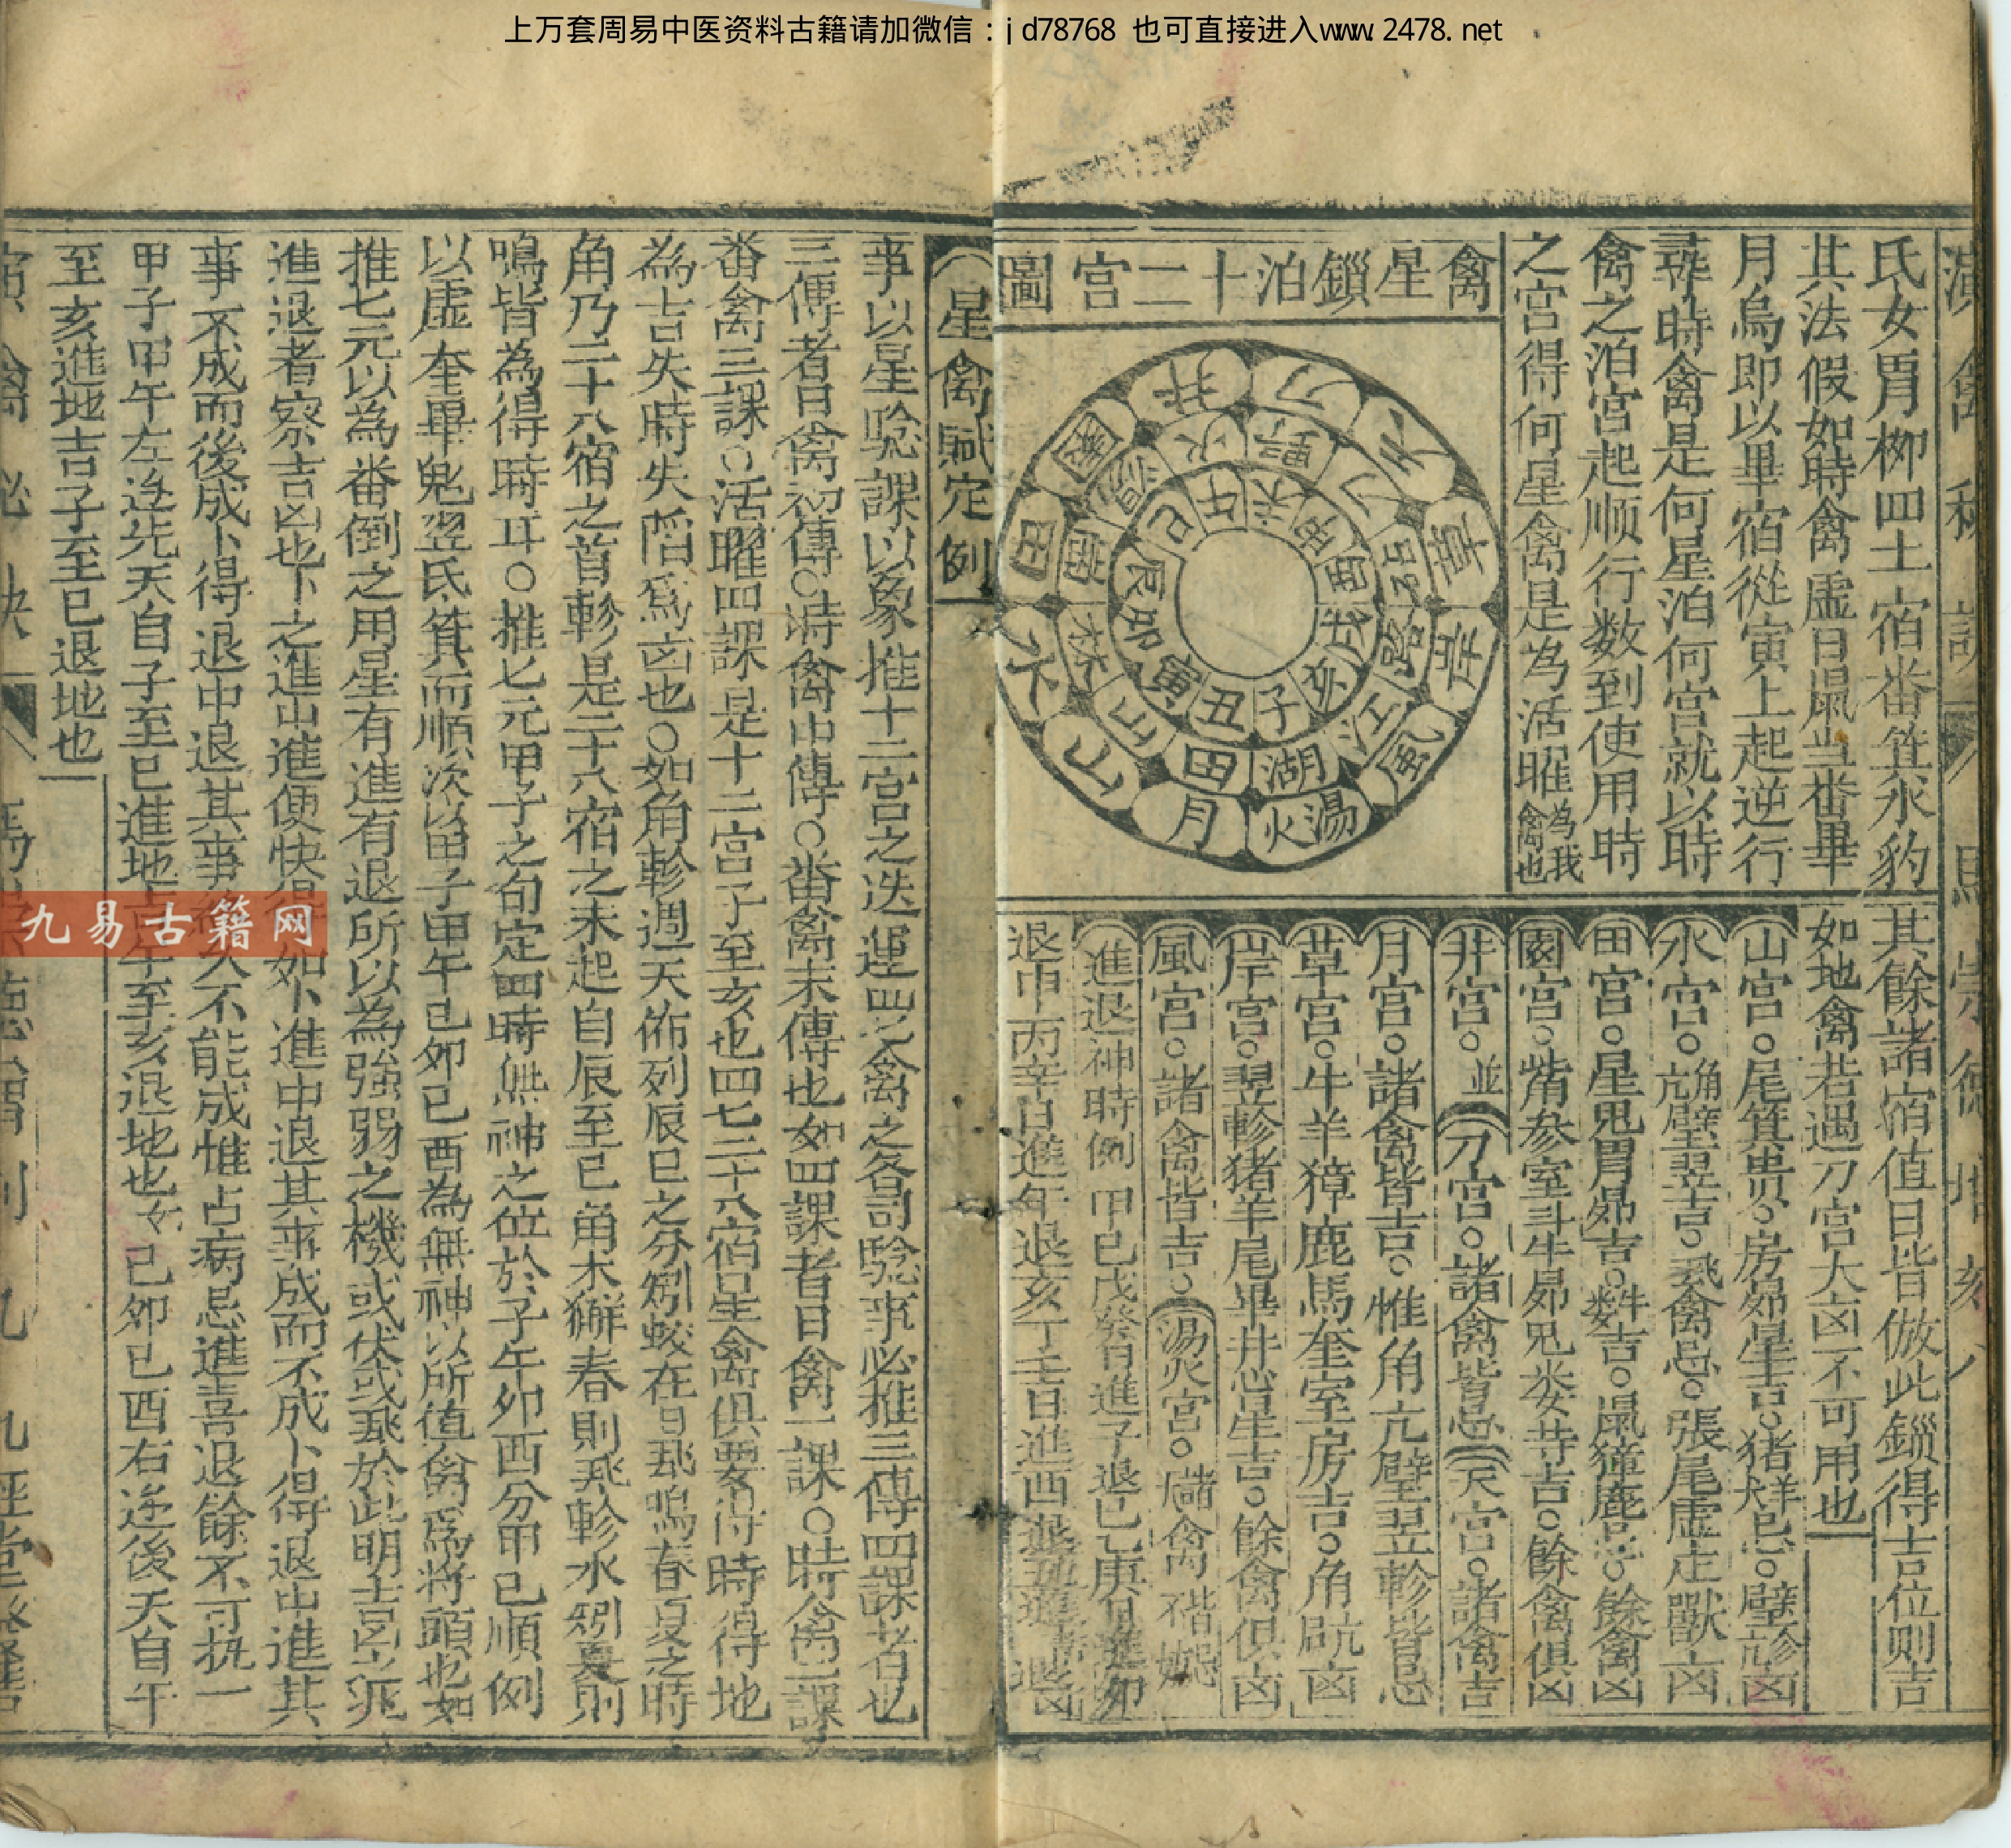 上万套周易中医资料古籍请加微信：jd78768 也可直接进入www.2478.net
氐女胃柳四土宿畨箕水豹
其法假如時禽虛日鼠当畨畢
月烏即以畢宿從寅上起逆行
尋時禽是何星泊何宮就以時
禽之泊宮起順行数到使用時
之宮得何星禽是為活曜為我禽也
禽星鎖泊十二宮圖
刀
天
草
岸
風
湯火
月
山
水
田
園
井
湖
田
山
林
江
火
子
丑
寅
卯
辰
巳
午
未
申
酉
戌
亥
其餘諸宿值日皆倣此鎖得吉位则吉
如地禽若遇刀宮大凶不可用也
山宮○尾箕
水宮○角亢璧翌吉○飛禽忌○張尾虛走獸凶
田宮○星鬼胃昴吉
園宮○觜参室斗牛昴鬼娄井吉○餘禽俱凶
井宮○並刀宮○諸禽皆忌天宮○諸禽吉
月宮○諸禽皆吉○惟角亢壁翌軫皆忌
草宮○牛羊獐鹿馬奎室房吉○角亢凶
岸宮○翌軫猪羊尾畢井心星吉○餘禽俱凶
風宮○諸禽皆吉○湯火宮○諸禽皆忌
進退神時例 甲己戊癸日進子退巳乙庚日進卯
退申丙辛日進午退亥丁壬日進酉退
星禽賦定例
事以星唸課以象推十二宮之迭運四七禽之各司驗事必推三傳四課者也
三傳者日禽初傳○時禽中傳○畨禽末傳也如四課者日禽一課○時禽二課
畨禽三課○活曜四課是十二宮子至亥也四七二十八宿星禽俱要得時得地
為吉失時失陷爲凶也○如角軫週天佈列辰巳之分
角乃二十八宿之首軫是二十八宿之末起自辰至巳角木獬春則飛軫水蚓夏則
鳴皆為得時耳○推七元甲子之旬定四時無神之位於子午卯酉分甲己順例
以虛奎畢鬼翌氐箕而順次以甲子甲午己卯己酉為無神以所值禽爲將頭也如
推七元以為畨倒之用星有進有退所以為強弱之機或伏或飛於此明吉凶
進退者察吉凶也卜之進中進便快得 如卜進中退其事成而不成卜得退中進其
事不成而後成卜得退中退其事 久不能成惟占病忌進喜退餘不可执一
甲子甲午左逆先天自子至巳進地吉午至亥退地也 己卯己酉右逆後天自午
至亥進地吉子至巳退地也
九易古籍网